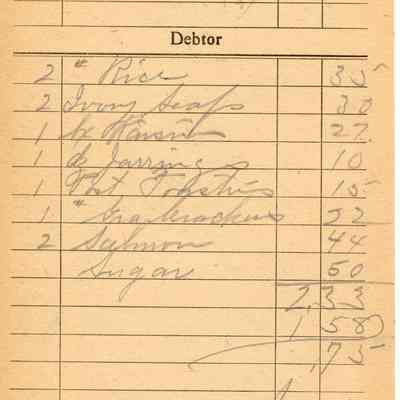 Debtor
2 " Rice 35
2 Ivory Soaps 30
1 bx Raisins 27
1 dz Jar rings 10
1 Post Toasties 15
1 " 22
2 Salmon 44
Sugar 50
2.33
1 58
.75